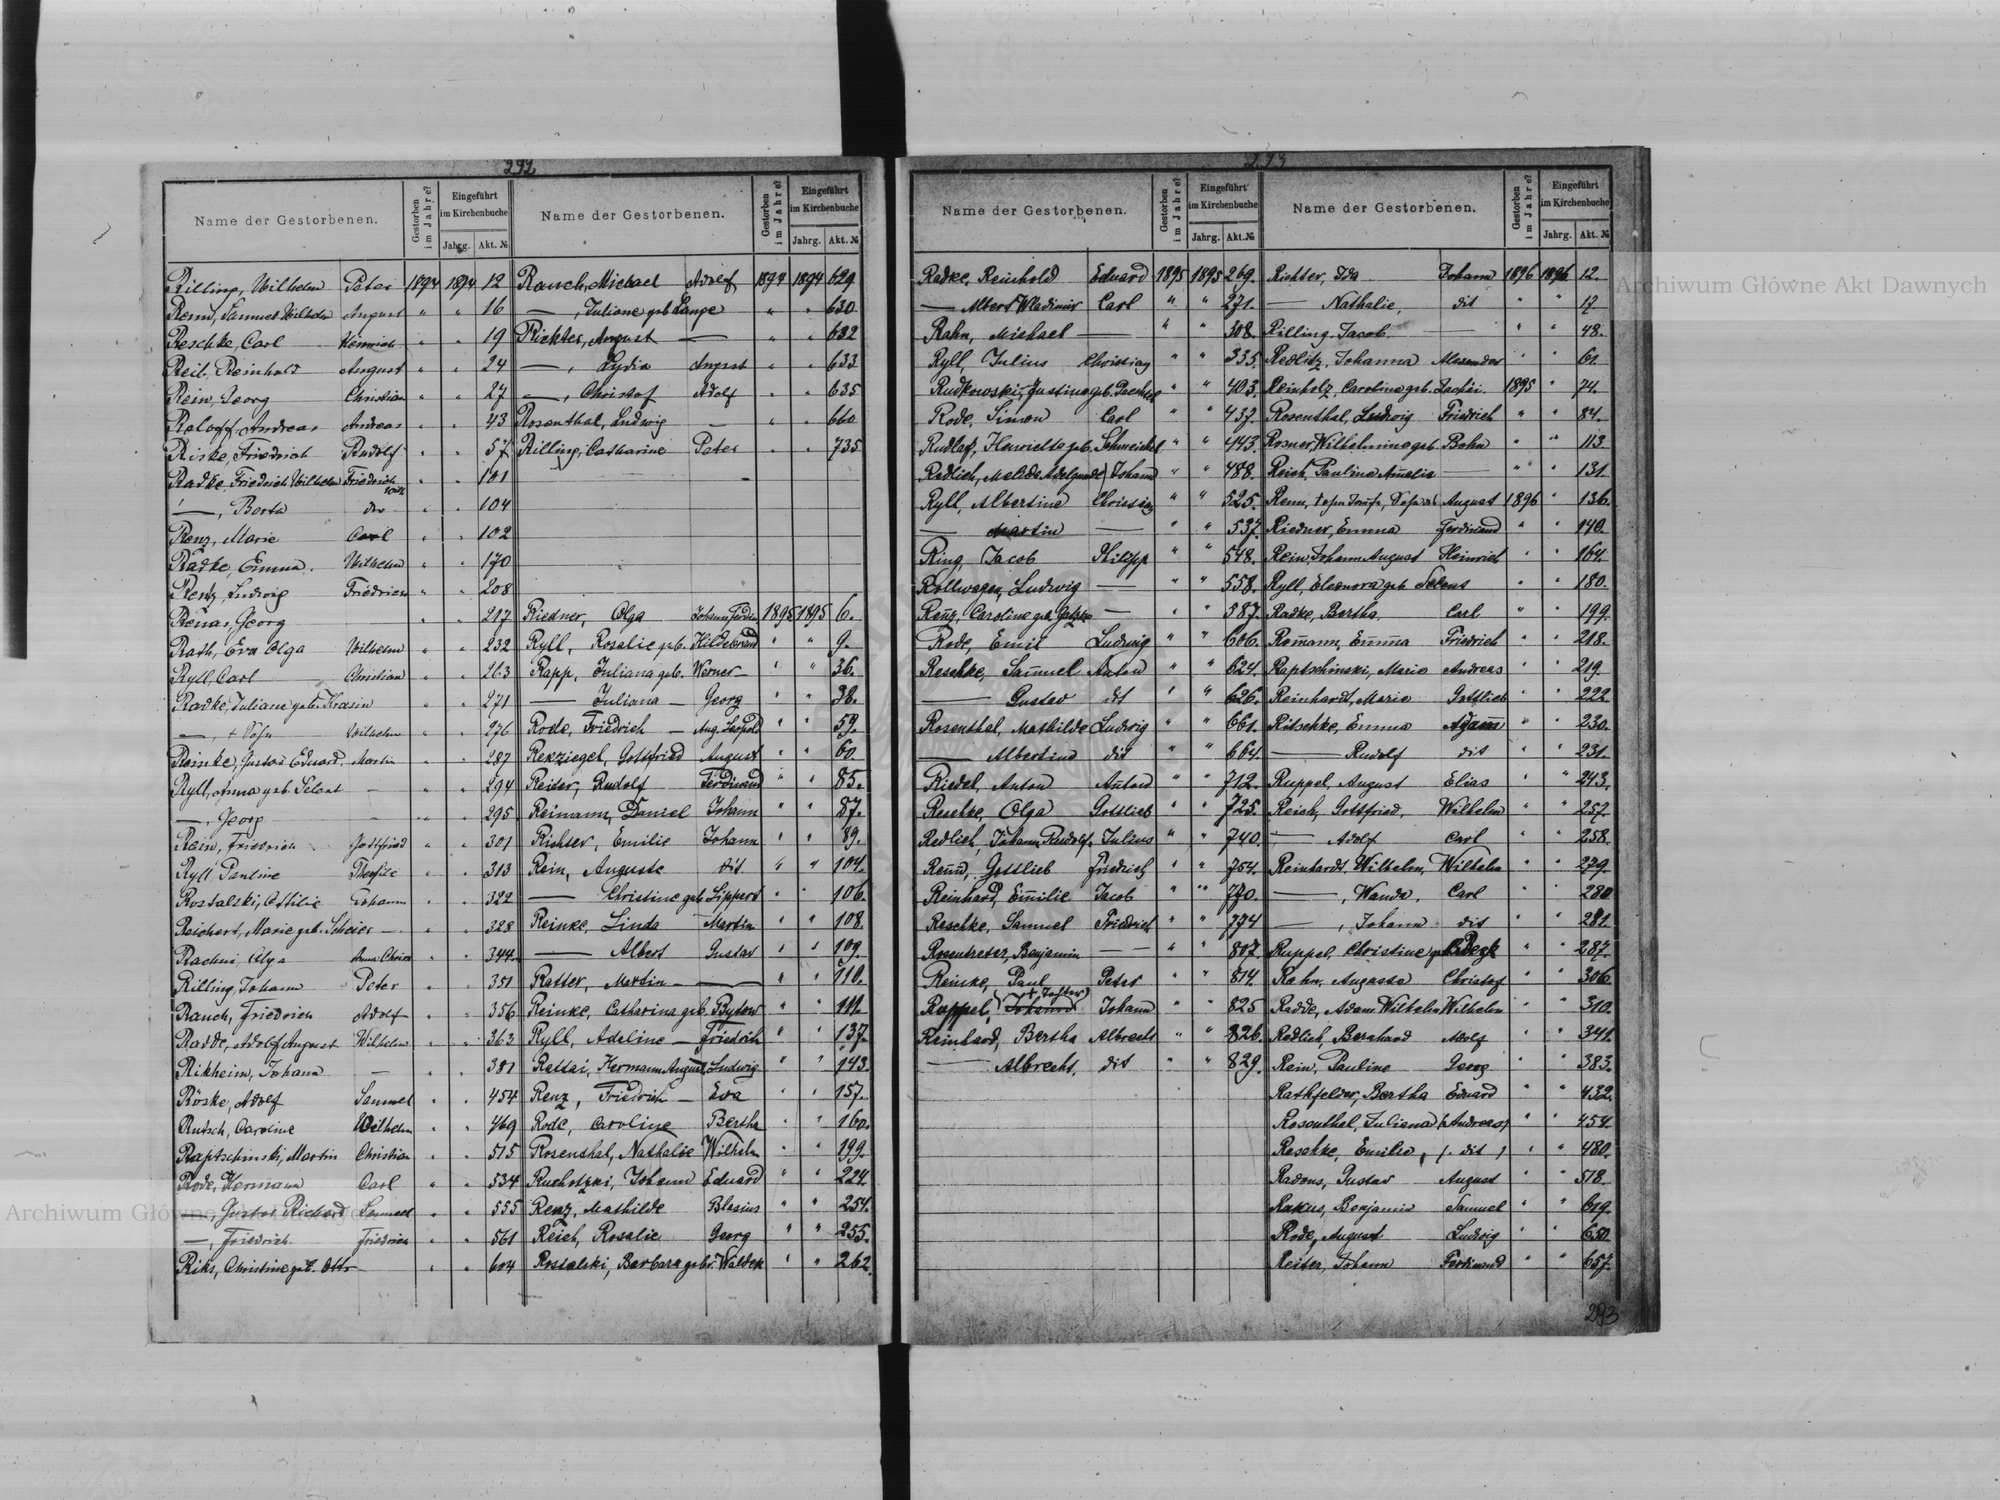 292
Name der Gestorbenen. Gestorben im Jahre? Eingeführt im Kirchenbuche Jahrg. Akt. №
Rilling, Wilhelm Peter 1894 1894 12
Renn, Samuel Wilhelm August " " 16
Reschke, Carl Heinrich " " 19
Reil, Reinhold August " " 24
Rein, Georg Christian " " 27
Raloff, Andreas Andreas " " 43
Riske, Friedrich Rudolf " " 57
Radke, Friedrich Wilhelm Friedrich " " 101
—, Berta " " 104
Renz, Marie Carl " " 102
Radke, Emma Wilhelm " " 170
Rentz, Ludwig Friedrich " " 208
Georg " " 217
Rath, Eva Olga Wilhelm " " 232
Ryll, Carl Christian " " 263
Radke, Juliane geb. Krasin " " 271
—, Wilhelm " " 276
Reinke, Gustav Eduard Martin " " 287
Ryll, Anna geb. — " " 294
—, Georg " " 295
Rein, Friedrich Gottfried " " 301
Ryll, Pauline " " 313
Rostalski, Ottilie Johann " " 322
Reichert, Marie geb. — " " 328
Olga " " 344
Rilling, Johann Peter " " 351
Rauch, Friedrich Adolf " " 356
Radde, Adolf August Wilhelm " " 363
Rikheim, Johann — " " 381
Röske, Adolf Samuel " " 454
Rutsch, Caroline Wilhelm " " 469
Raptschinski, Martin Christian " " 515
Rode, Hermann Carl " " 534
—, Gustav Richard Samuel " " 555
—, Friedrich Friedrich " " 561
Riks, Christine geb. Otto " " 604
Name der Gestorbenen. Gestorben im Jahre? Eingeführt im Kirchenbuche Jahrg. Akt. №
Rauch, Michael Adolf 1894 1894 629
—, Juliane geb. Lange " " 630
Richter, August — " " 632
—, Lydia August " " 633
—, Christof Adolf " " 635
Rosenthal, Ludwig — " " 660
Rilling, Catharine Peter " " 735
Riedner, Olga 1895 1895 6.
Ryll, Rosalie geb. Hildebrand " " 9.
Rapp, Juliana geb. Werner " " 36.
— Juliana — Georg " " 38.
Rode, Friedrich — Aug. Leopold " " 59.
Renziegel, Gottfried August " " 60.
Reiter, Rudolf Ferdinand " " 85.
Reimann, Daniel Johann " " 87.
Richter, Emilie Johann " " 89.
Rein, Auguste dit. " " 104.
— Christine geb. Lippert " " 106.
Reinke, Linda Martin " " 108.
— Albert Gustav " " 109.
Ratter, Martin — " " 110.
Reinke, Catharina geb. Bytow " " 111.
Ryll, Adeline — Friedrich " " 137.
Rattai, Hermann August, Ludwig " " 143.
Renz, Friedrich — Eva " " 157.
Rode, Caroline Bertha " " 160.
Rosenthal, Nathalie Wilhelm " " 199.
Johann Eduard " " 224.
Renz, Mathilde Blasius " " 254.
Reich, Rosalie Georg " " 255.
Rostalski, Barbara gebr. Waldek " " 262.
293
Name der Gestorbenen. Gestorben im Jahre? Eingeführt im Kirchenbuche Jahrg. Akt. №
Radke, Reinhold Eduard 1895 1895 269.
— Albert Wladimir Carl " " 271.
Rahn, Michael — " " 308.
Ryll, Julius Christian " " 335.
Rudkowski, Justina geb. " " 403.
Rode, Simon Carl " " 437.
Henriette geb. " " 443.
Redlich, Johann " " 488.
Ryll, Albertine Christian " " 525.
— Martin — " " 537.
Ring, Jacob Philipp " " 548.
Rollwagen, Ludwig — " " 558.
Caroline geb. — " " 587.
Rode, Emil Ludwig " " 606.
Reschke, Samuel Anton " " 624.
— Gustav dit " " 626.
Rosenthal, Mathilde Ludwig " " 661.
— Albertine dit " " 664.
Riedel, Anton Anton " " 712.
Reschke, Olga Gottlieb " " 725.
Redlich, Johann Rudolf, Julius " " 740.
Gottlieb Friedrich " " 754.
Reinhard, Emilie Jacob " " 770.
Reschke, Samuel Friedrich " " 774
Rosentreter, Benjamin — " " 807.
Reinke, Paul Peter " " 814.
Ruppel, Johann " " 825
Reinhard, Bertha Albrecht " " 826.
— Albrecht, dit " " 829.
Name der Gestorbenen. Gestorben im Jahre? Eingeführt im Kirchenbuche Jahrg. Akt. №
Richter, Ida Johann 1896 1896 12.
— Nathalie, dit " " 17.
Rilling, Jacob. — " " 48.
Redlitz, Johanna Alexander " " 61.
Reinholz, Caroline geb. 1895 " 74.
Rosenthal, Ludwig Friedrich " " 84.
Rosner, Wilhelmine geb. Bohn " " 113
Reich, Pauline Amalia — " " 131.
Renn, August 1896 " 136.
Riedner, Emma Ferdinand " " 140.
Rein, Johann August Heinrich " " 164.
Ryll, Eleonora geb. " " 180.
Radke, Bertha Carl " " 199.
Romann, Emma Friedrich " " 218.
Raptschinski, Marie Andreas " " 219.
Reinhardt, Marie Gottlieb " " 222
Ritschke, Emma Adam " " 230.
— Rudolf dit " " 231.
Ruppel, August Elias " " 243.
Reich, Gottfried, Wilhelm " " 257.
— Adolf Carl " " 258.
Reinhardt, Wilhelm, Wilhelm " " 279.
—, Wanda, Carl " " 280
—, Johann dit " " 281.
Ruppel, Christine " " 287.
Rahn, Augusta Christof " " 306.
Radde, Adam Wilhelm Wilhelm " " 310.
Redlich, Bernhard Adolf " " 341.
Rein, Pauline Georg " " 383.
Rathfelder, Bertha Eduard " " 432.
Rosenthal, Juliana Andreas " " 454.
Reschke, Emilie, dit " " 480.
Radons, Gustav August " " 518.
Rakus, Benjamin Samuel " " 619.
Rode, August Ludwig " " 650.
Reiter, Johann Ferdinand " " 657.
293
Archiwum Główne Akt Dawnych
Archiwum Główne Akt Dawnych